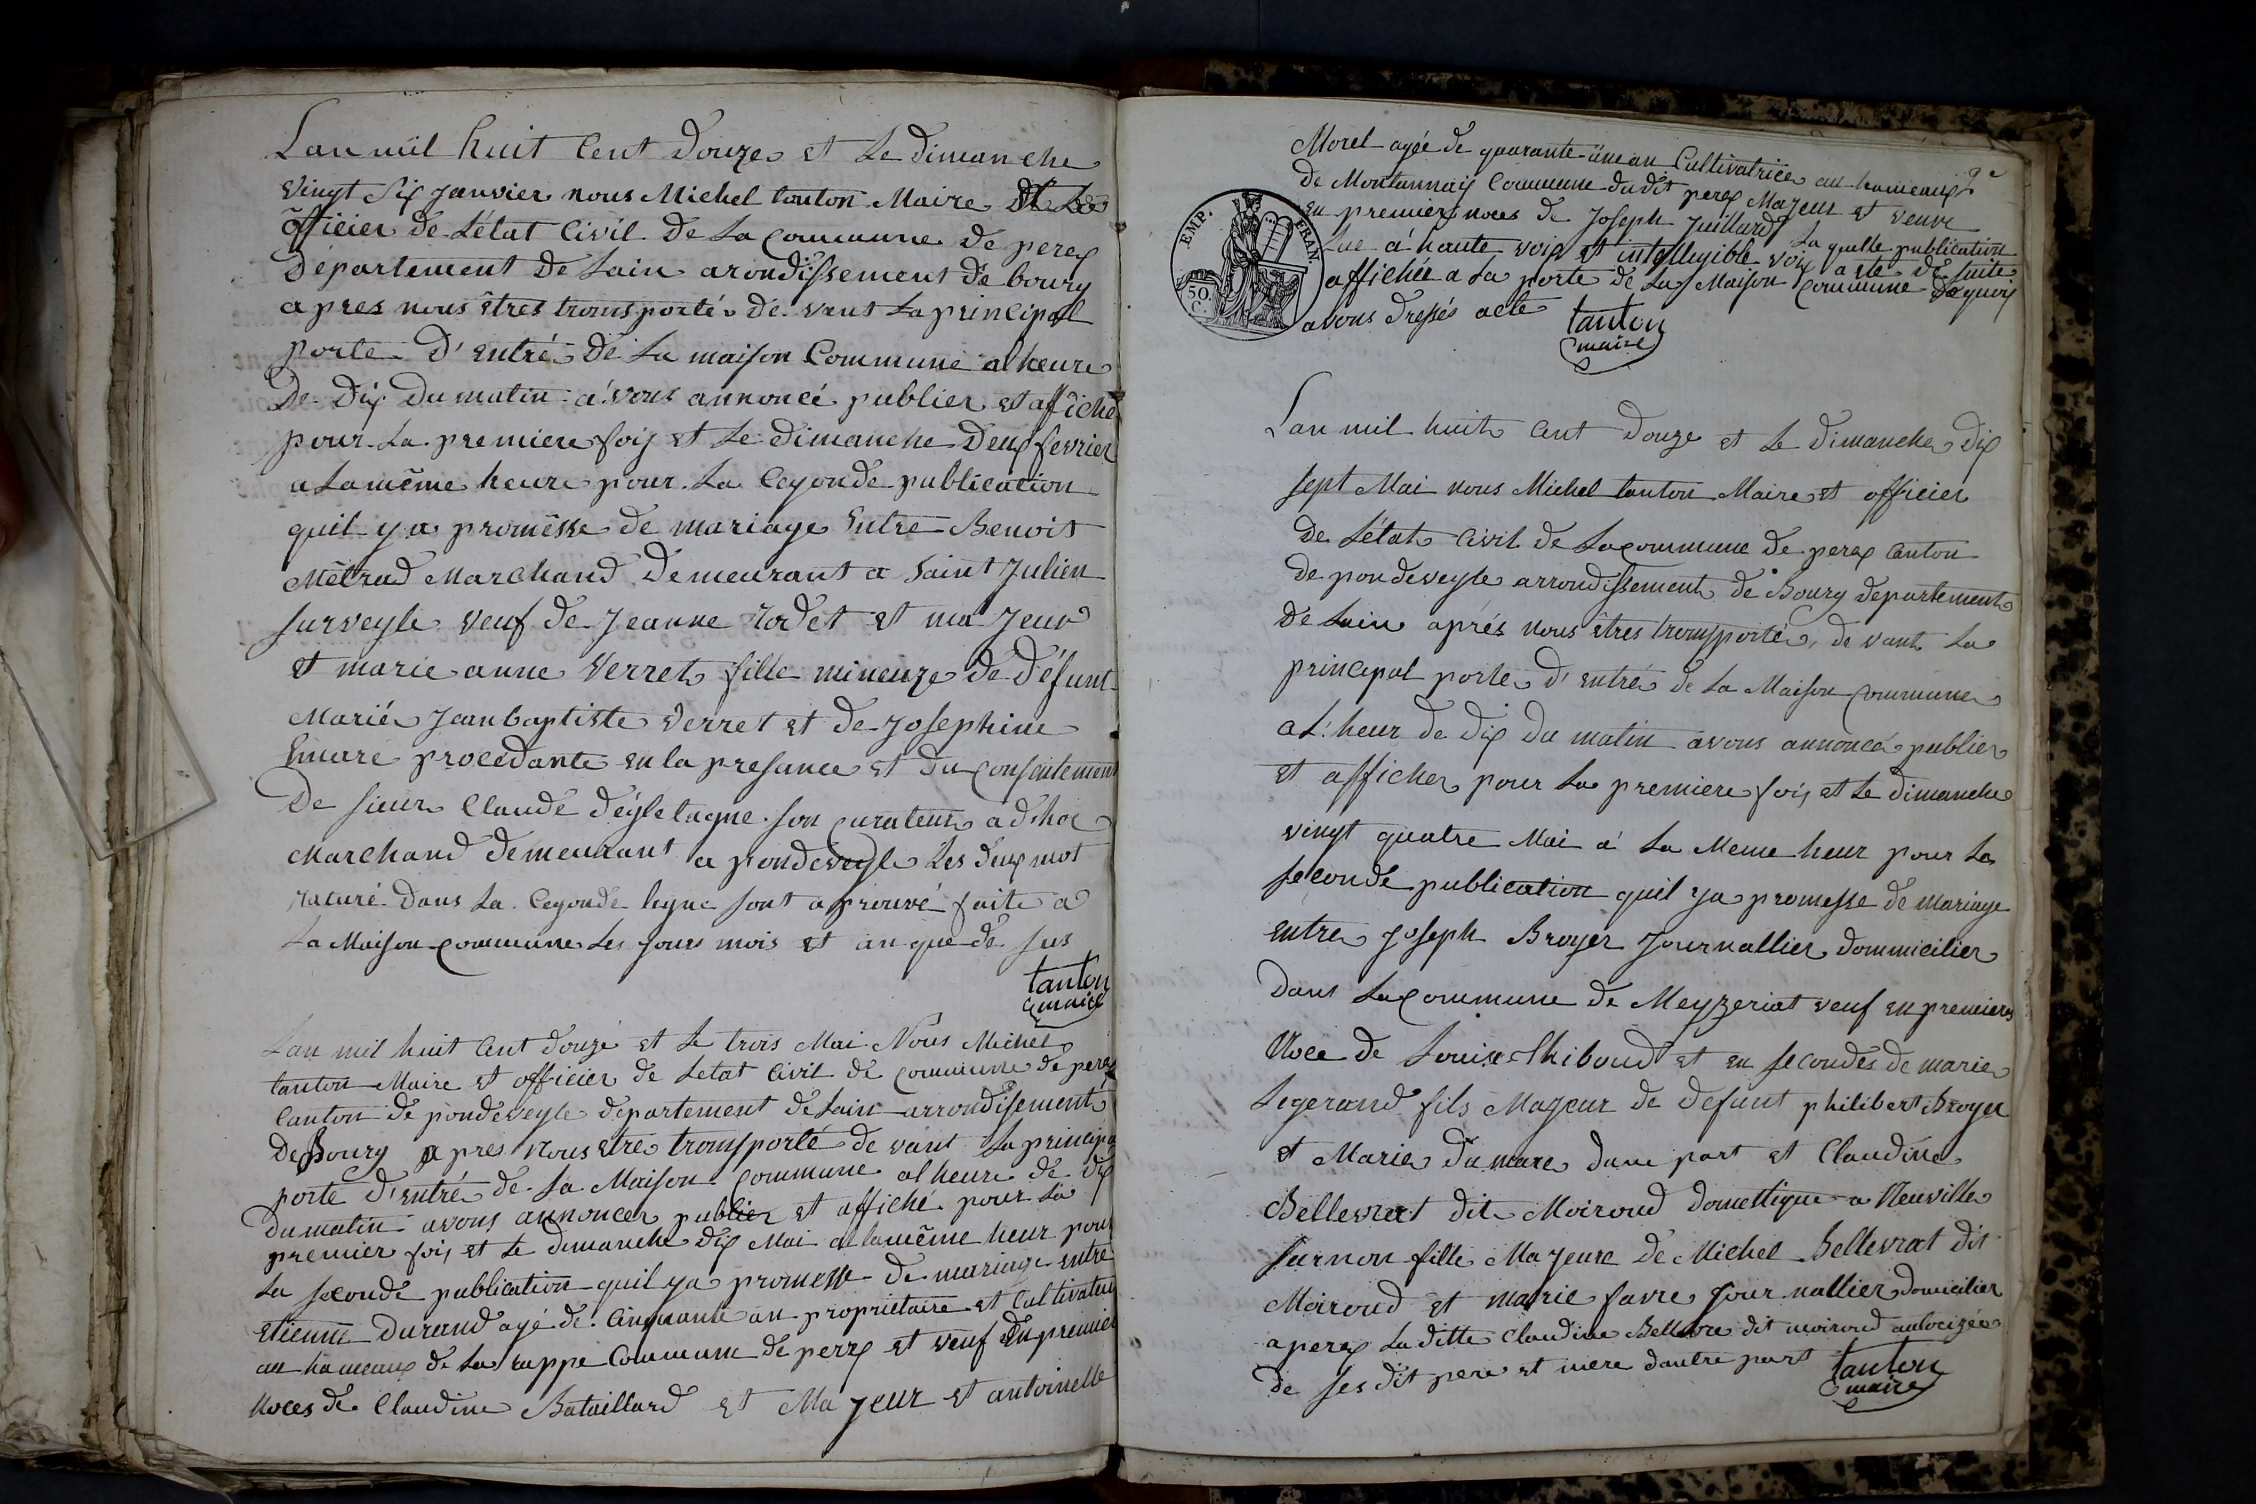 Lan mil huit Cent Douze et Le dimanche
vingt Six Janvier nous Michel tanton Maire et Le
officier de L'état Civil de La Commune de perex
Departement De Lain arondissement de bourg
apres nous êtres transporté de vant La principal
porte D'entré De La maison Commune alheure
De Dix Du matin avons annoncé publier et affiché
pour La premiere fois et Le dimanche Deux fevrier
a La même heure pour La Cegonde publication
quil y a promêsse de mariage Entre Benoit
Mêtrad Marchand Demeurant a Saint Julien
surveyle veuf de Jeanne rodet et ma Jeur
et marie anne Verret fille mineure de Défunt
Marié Jeanbaptiste Verret et de Josephine
Emare procedante en la presance et du consentement
De sieur Claude Déglelagne son curateur ad hoc
Marchand demeurant a pondeveyle Les deux mot
raturé dans La Cegonde legne sont aprouvé faite a
La Maison Commune Les Jours mois et an que de sus
tanton
maire
Lan mil huit Cent douze et Le trois Mai Nous Michel
tanton Maire et officier de Letat Civil de commune de perex
Canton de pondeveyle departement de Lain arrondisement
De Bourg apres Nous etre transporté de vant La principa
porte d'entré de La Maison Commune al heure de Dix
Du matin avons annoncer publier et affiché pour La
premier fois et Le dimanche Dix Mai a la même heur pour
La seconde publication quil ya promesse de mariage entre
etienne Durand agé de Cinquante an propriétaire et Cultivateur
au hameaux de La rappe Commune de perex et veuf En premier
Noces de Claudine Bataillard et Ma Jeur et antoinette
2e
Morel agée de quarante-un an Cultivatrice au hameaux
de Montannay Commune du dit perex Majeur et veuve
en premier noces de Joseph Juillard La quelle publication
Lue à haute voix et intellegible voix a eté de suite
affichée a La porte de La Maison Commune De quoi
avons dressés acte
tanton
maire
EMP. FRAN.
50. C.
Lan mil huit Cent Douze et Le Dimanche Dix
sept Mai nous Michel tanton Maire et officier
De L'état Civil de La commune de perex Canton
De pondeveyle arrondissement de Bourg departement
De Lain aprés nous etres transporté de vant La
principal porte D'entré de La Maison Commune
a L'heur de Dix Du matin avons annoncé publier
et afficher pour La premiere fois et Le dimanche
vingt quatre Mai a La Meme heur pour La
seconde publication quil ya promesse de mariage
entre Joseph Broyer Journallier dommicilier
Dans La commune de Meyzeriat veuf en premieres
Noce de Louise Thiboud et en secondes de marie
Legerand fils Majeur de defunt philibert Broyer
et Marie Dumare dune part et Claudine
Bellevrat dit Moiroud domestique a Neuville
surnon fille Majeure de Michel Bellevrat dit
Moiroud et marie favre Journallier domicilier
a perex La ditte Claudine Bellevre dit moiroud autorizée
de ses dit pere et mere dautre part
tanton
maire